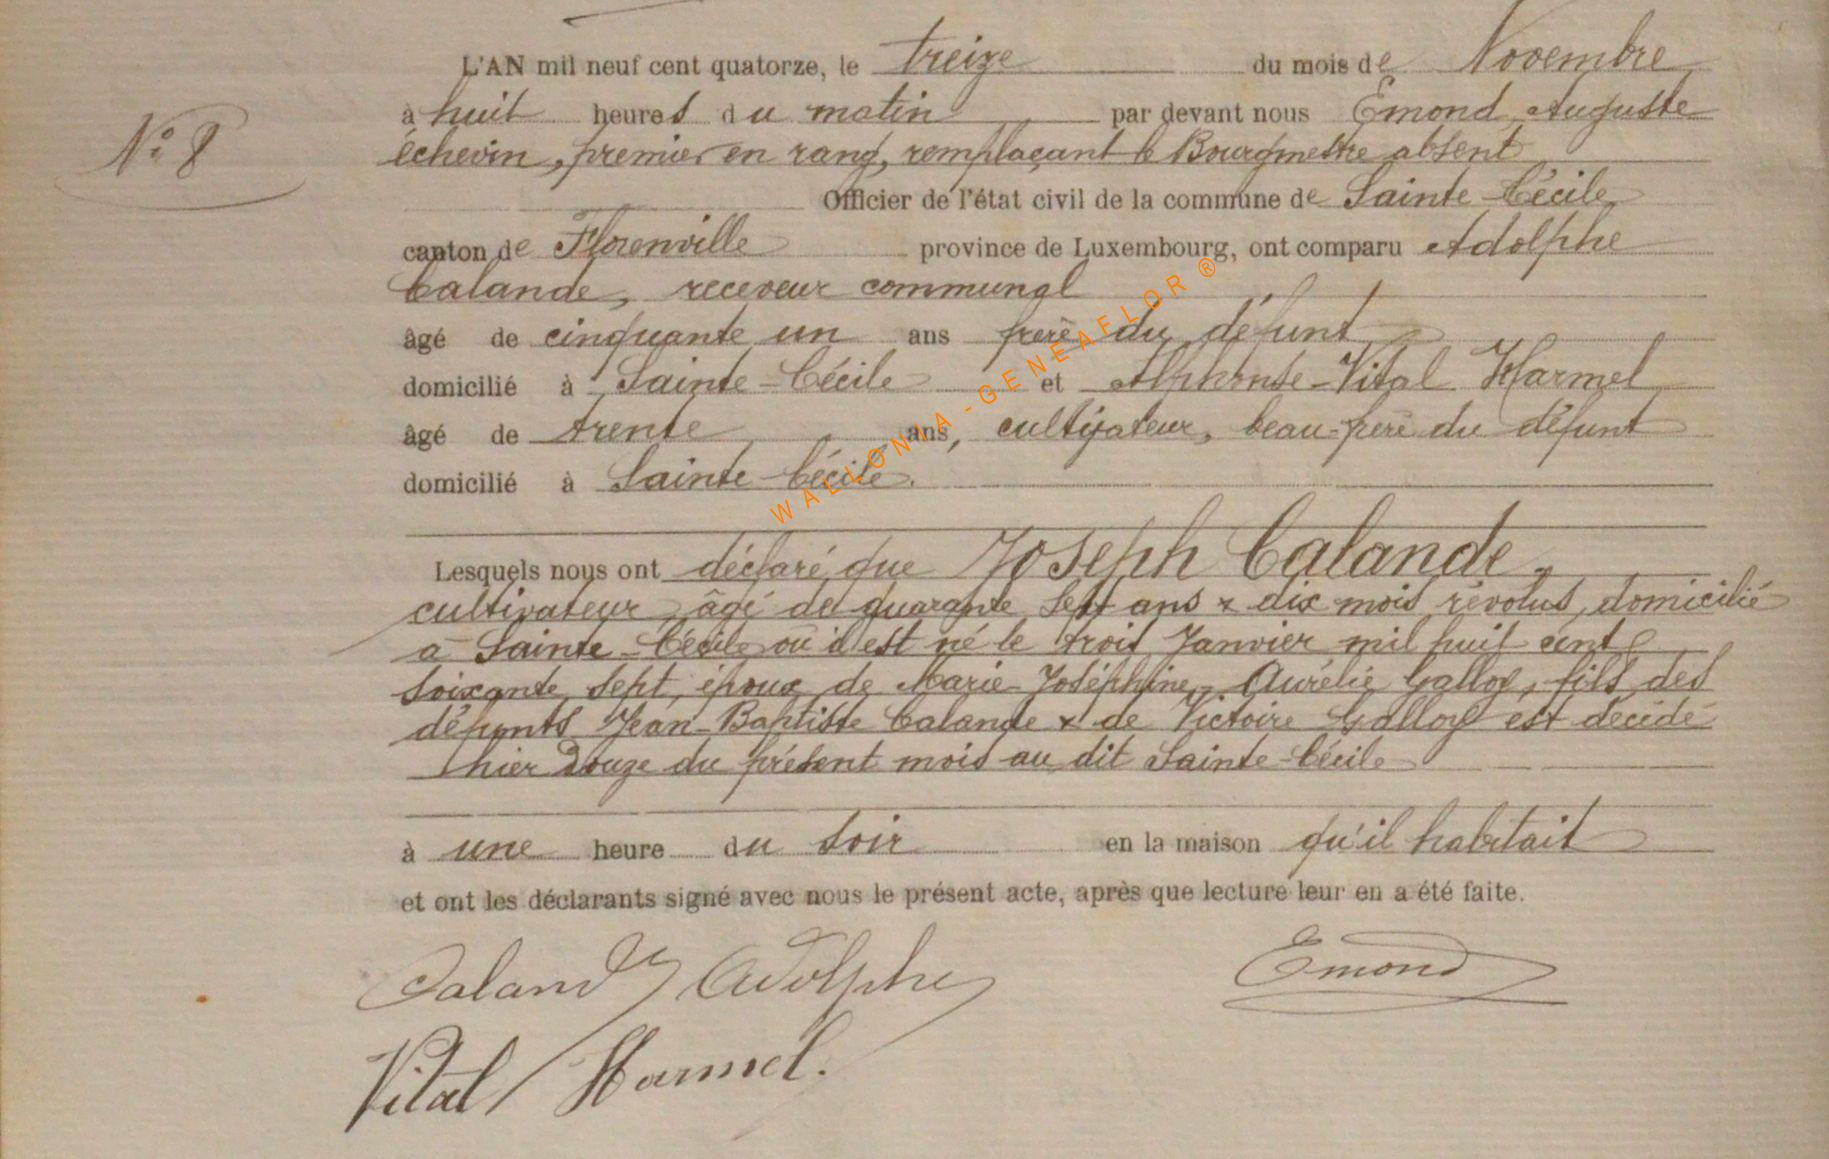 L'AN mil neuf cent quatorze, le treize du mois de Novembre
N° 8
à huit heures du matin par devant nous Emond, Auguste
échevin, premier en rang, remplaçant le Bourgmestre absent
Officier de l'état civil de la commune de Sainte-Cécile
canton de Florenville province de Luxembourg, ont comparu Adolphe
Calande, receveur communal
âgé de cinquante un ans frère du défunt
domicilié à Sainte-Cécile et Alphonse-Vital Harmel
âgé de trente ans, cultivateur, beau-frère du défunt
domicilié à Sainte-Cécile.
WALLONIA-GENEAFLOR ®
Lesquels nous ont déclaré que Joseph Calande,
cultivateur, âgé de quarante sept ans & dix mois révolus, domicilié
à Sainte-Cécile où il est né le trois Janvier mil huit cent
soixante sept, époux de Marie-Joséphine, Aurélie Galloy, fils des
défunts Jean-Baptiste Calande & de Victoire Galloy est décédé
hier douze du présent mois au dit Sainte-Cécile
à une heure du soir en la maison qu'il habitait
et ont les déclarants signé avec nous le présent acte, après que lecture leur en a été faite.
Calande Adolphe Emond
Vital Harmel.